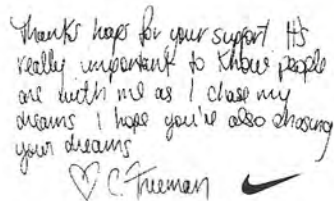 Thanks heaps for your support It's
really important to know people
are with me as I chase my
dreams I hope you're also chasing
your dreams
♡ C. Freeman